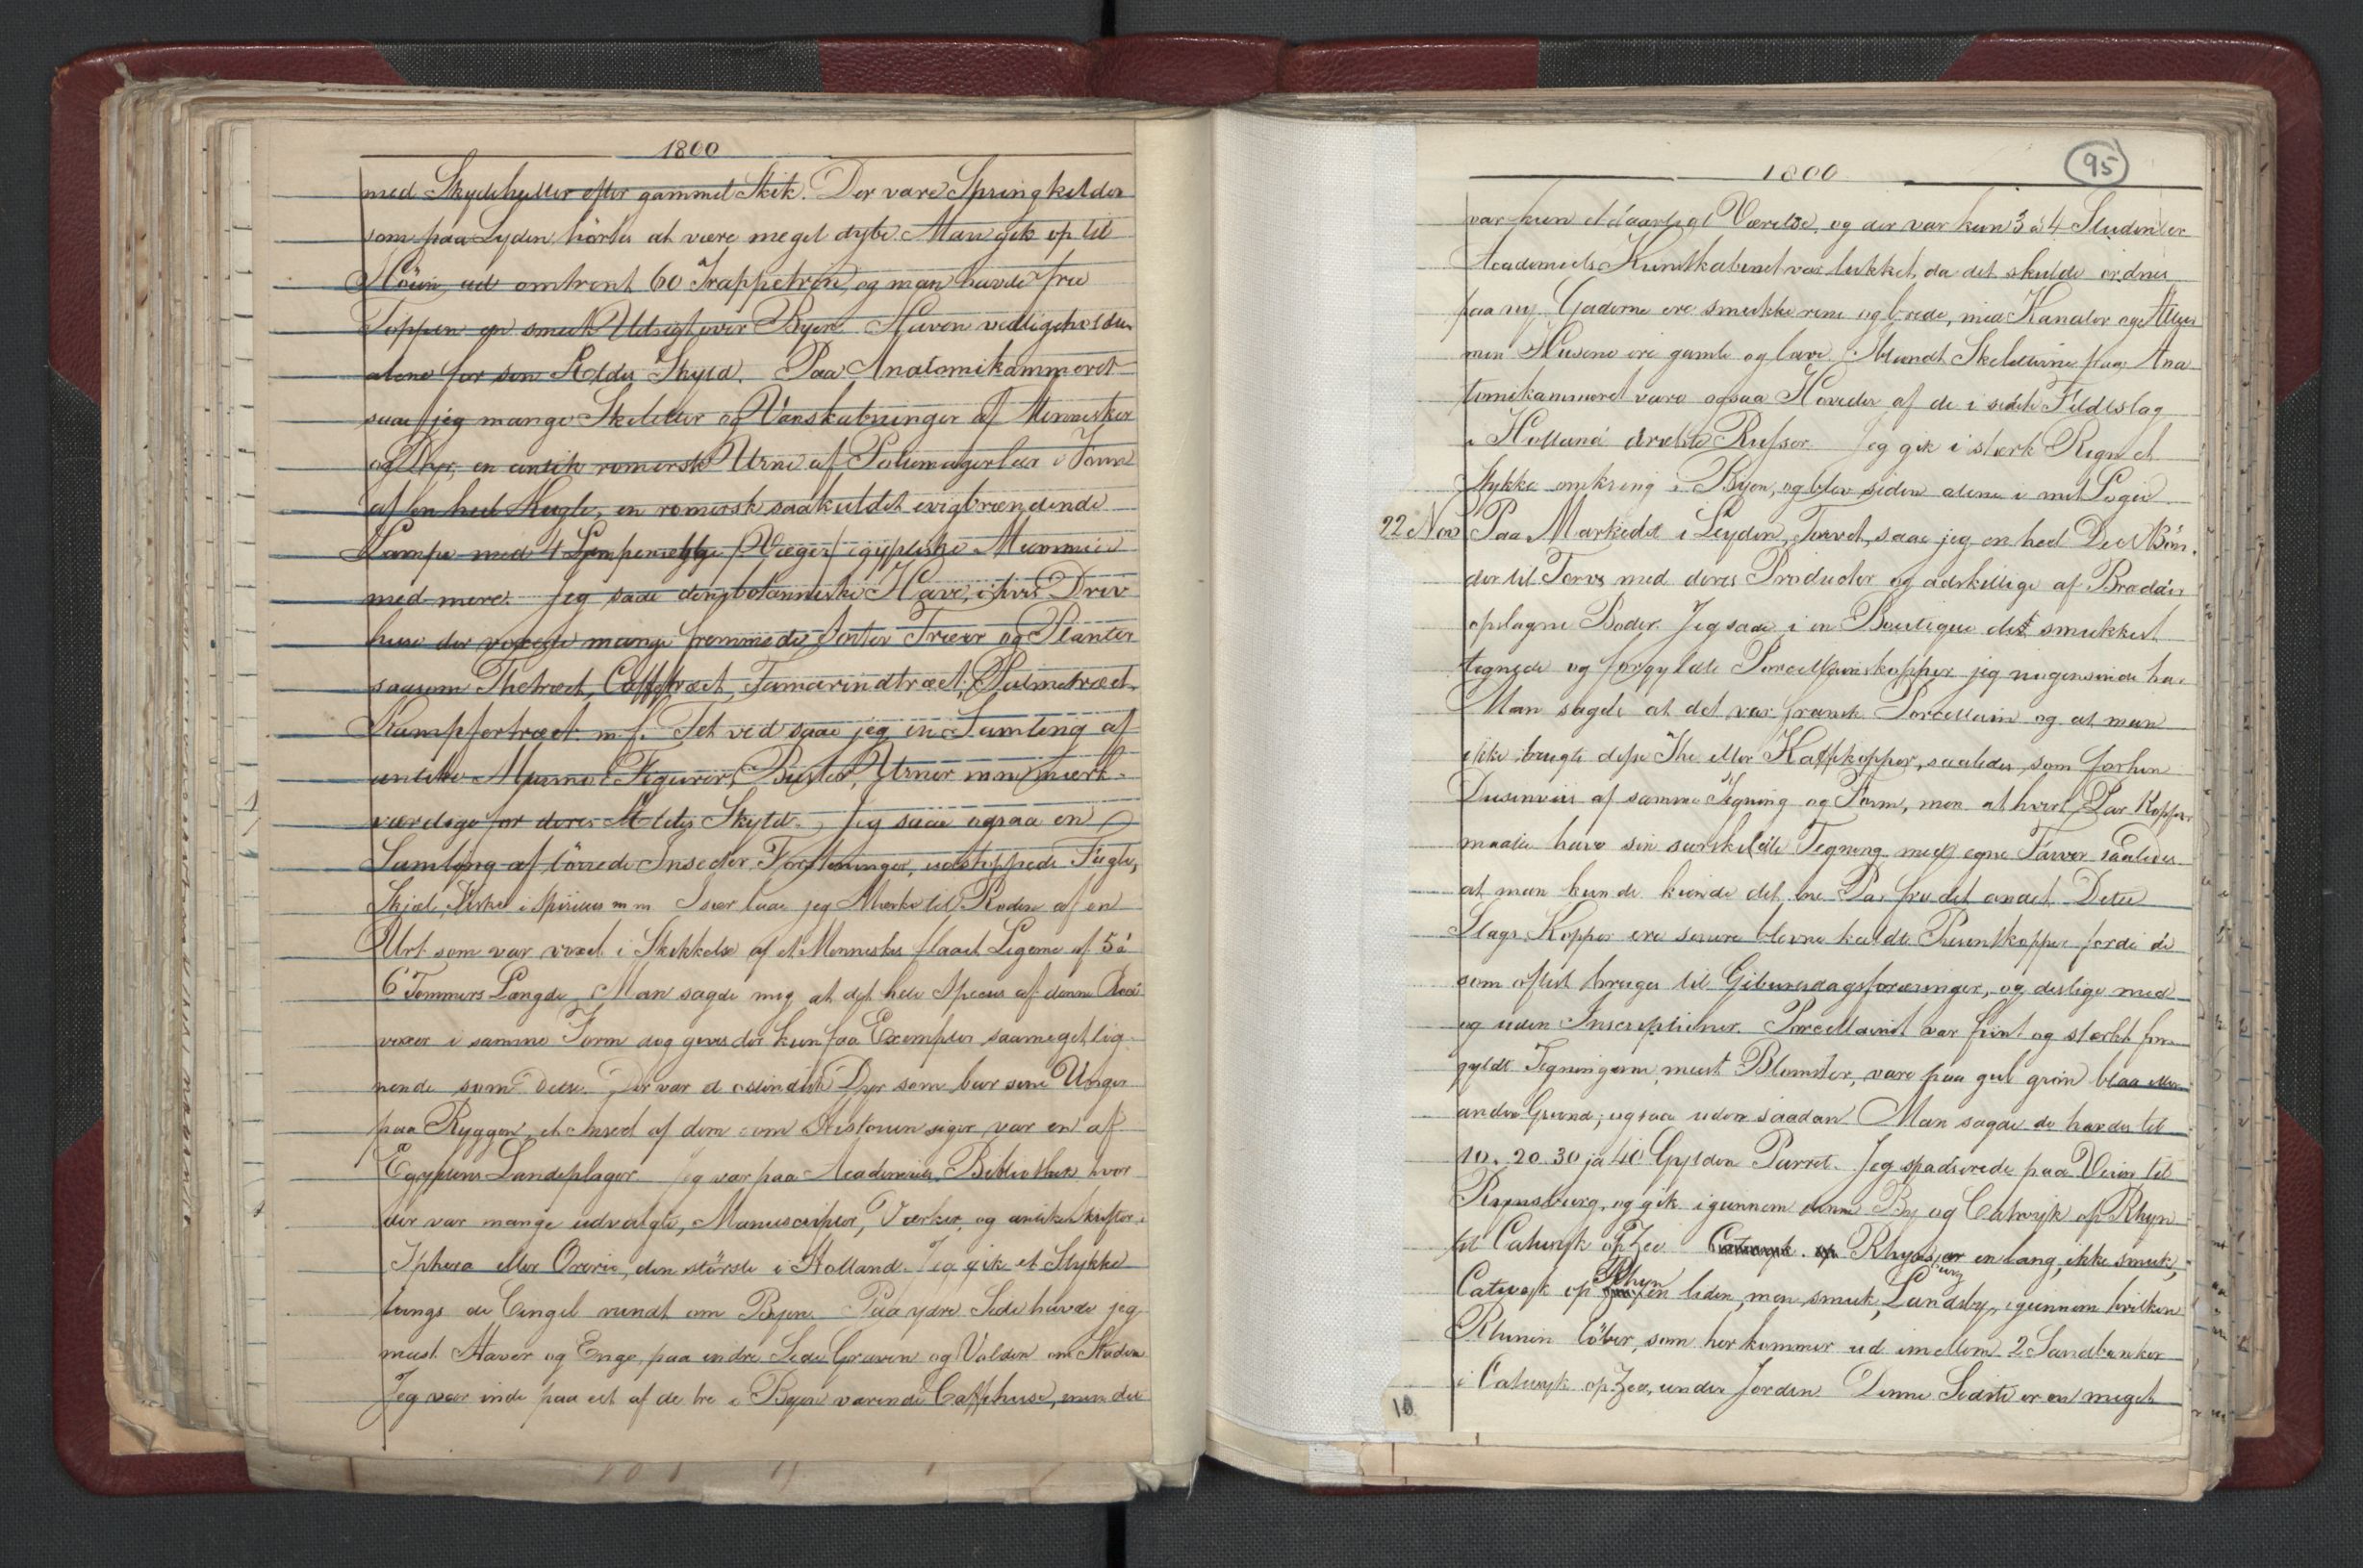 1800
med Skydehuller efter gammel Skik. Der vare Springkilder
som paa Lyden hörtes at være meget dybe. Man gik op til
Höien ad omtrent 60 Trappetrin, og man havde fra
Toppen en smuk Udsigt over Byen. Haven vedligeholdes
alene for sin Ældes Skyld. Paa Anatomikammeret
saae jeg mange Skeletter og Vanskabninger af Mennesker
og Dyr, en antik romersk Urne af Pottemagerleer i Form
af en heel Kugle, en romersk saakaldet evigbrændende
Lampe med 4 (Væger) egyptiske Mumier
med mere. Jeg saae den botanniske Have, i hvis Driv
huse der voxede mange fremmede Træer og Planter
saasom Thetræet, Caffetræet, Tamarindtræet, Palmetræet
Kampfertræet m. f. Tet ved saae jeg en Samling af
antike Marmor Figurer, Buster, Urner m m mærk-
værdige for deres Ældes Skyld. Jeg saae ogsaa en
Samling af törrede Insecter Forsteninger, udstoppede Fugle,
Skjæl, Fiske i Spiritus m m Især lagde jeg Mærke til Roden af en
Urt som var voxet i Skikkelse af et Menneskes flaaet Legeme af 5 à
6 Tommers Længde. Man sagde mig at det hele Species af denne Rod
voxer i samme Form dog gives der kun faa Exempler saameget lig-
nende som dette. Der var et ostindisk Dyr som bar sine Unger
paa Ryggen, et Insect af dem som Historien siger var en af
Egyptens Landeplager Jeg var paa Academiets Bibliothek hvor
der var mange udvalgte, Manuscripter, Værker, og
Sphera eller Orerie, den störste i Holland. Jeg gik et Stykke
langs de Cingel rundt om Byen. Paa ydre Side havde jeg
mest Haver og Enge, paa indre Side Graven og Volden om Staden
Jeg var inde paa eet af de tre i Byen værende Caffehuse, men det
95
1800
var kun et daarligt Værelse, og der var kun 3 à 4 Studenter
Academiets Kunstkabinet var lukket, da det skulde ordnes
paa ny. Gaderne ere smukke rene og brede, med Kanaler og Alleer
men Husene ere gamle og lave. Blandt Skeletterne paa Ana
tomikammeret vare ogsaa Hoveder af de i sidste Feldtslag
i Holland dræbte Russer. Jeg gik i stærk Regn et
Stykke omkring i Byen, og blev siden alene i mit Logie
22 Nov Paa Markedet i Leyden, Torvet, saae jeg en heel Deel Bön-
der til Torvs med deres Producter og adskillige af Brædder
opslagne Boder. Jeg saae i en Boutique det smukkest
tegnede og forgyldte Porcellainskopper jeg nogensinde har
Man sagde at det var fransk Porcellain og at man
ikke brugte disse The eller Kaffekopper, saaledes som forhen
Dusinviis af samme Tegning og Form, men at hvert Par Kopper
maatte have sin særskildte Tegning med egne Farver saaledes
at man kunde kiende det ene Par fra det andet Dette
Slags Kopper ere senere blevne kaldte Presentkopper fordi de
som oftest bruges til Geburtsdagsforæringer, og deslige med
og uden Inscriptioner. Porcellainet var fiint og stærkt for-
gyldt Tegningerne, meest Blomster, vare paa gul grön blaa eller
anden Grund; ogsaa uden saadan Man sagde de havdes til
10. 20 30 ja 40 Gylden Parret. Jeg spadserede paa Veien til
Rynsburg, og gik igiennem denne By og Catwijk op Rhyn
til Catwyk op Zee Catwyk op Rhynsburg er en lang, ikke smuk,
Catwyk op Rhyn en liden, men smuk, Landsby, igiennem hvilken
Rhinen löber, som her kommer ud imellem 2 Sandbanker
i Catwyk op Zee, under Jorden Denne Sidste er en meget
10